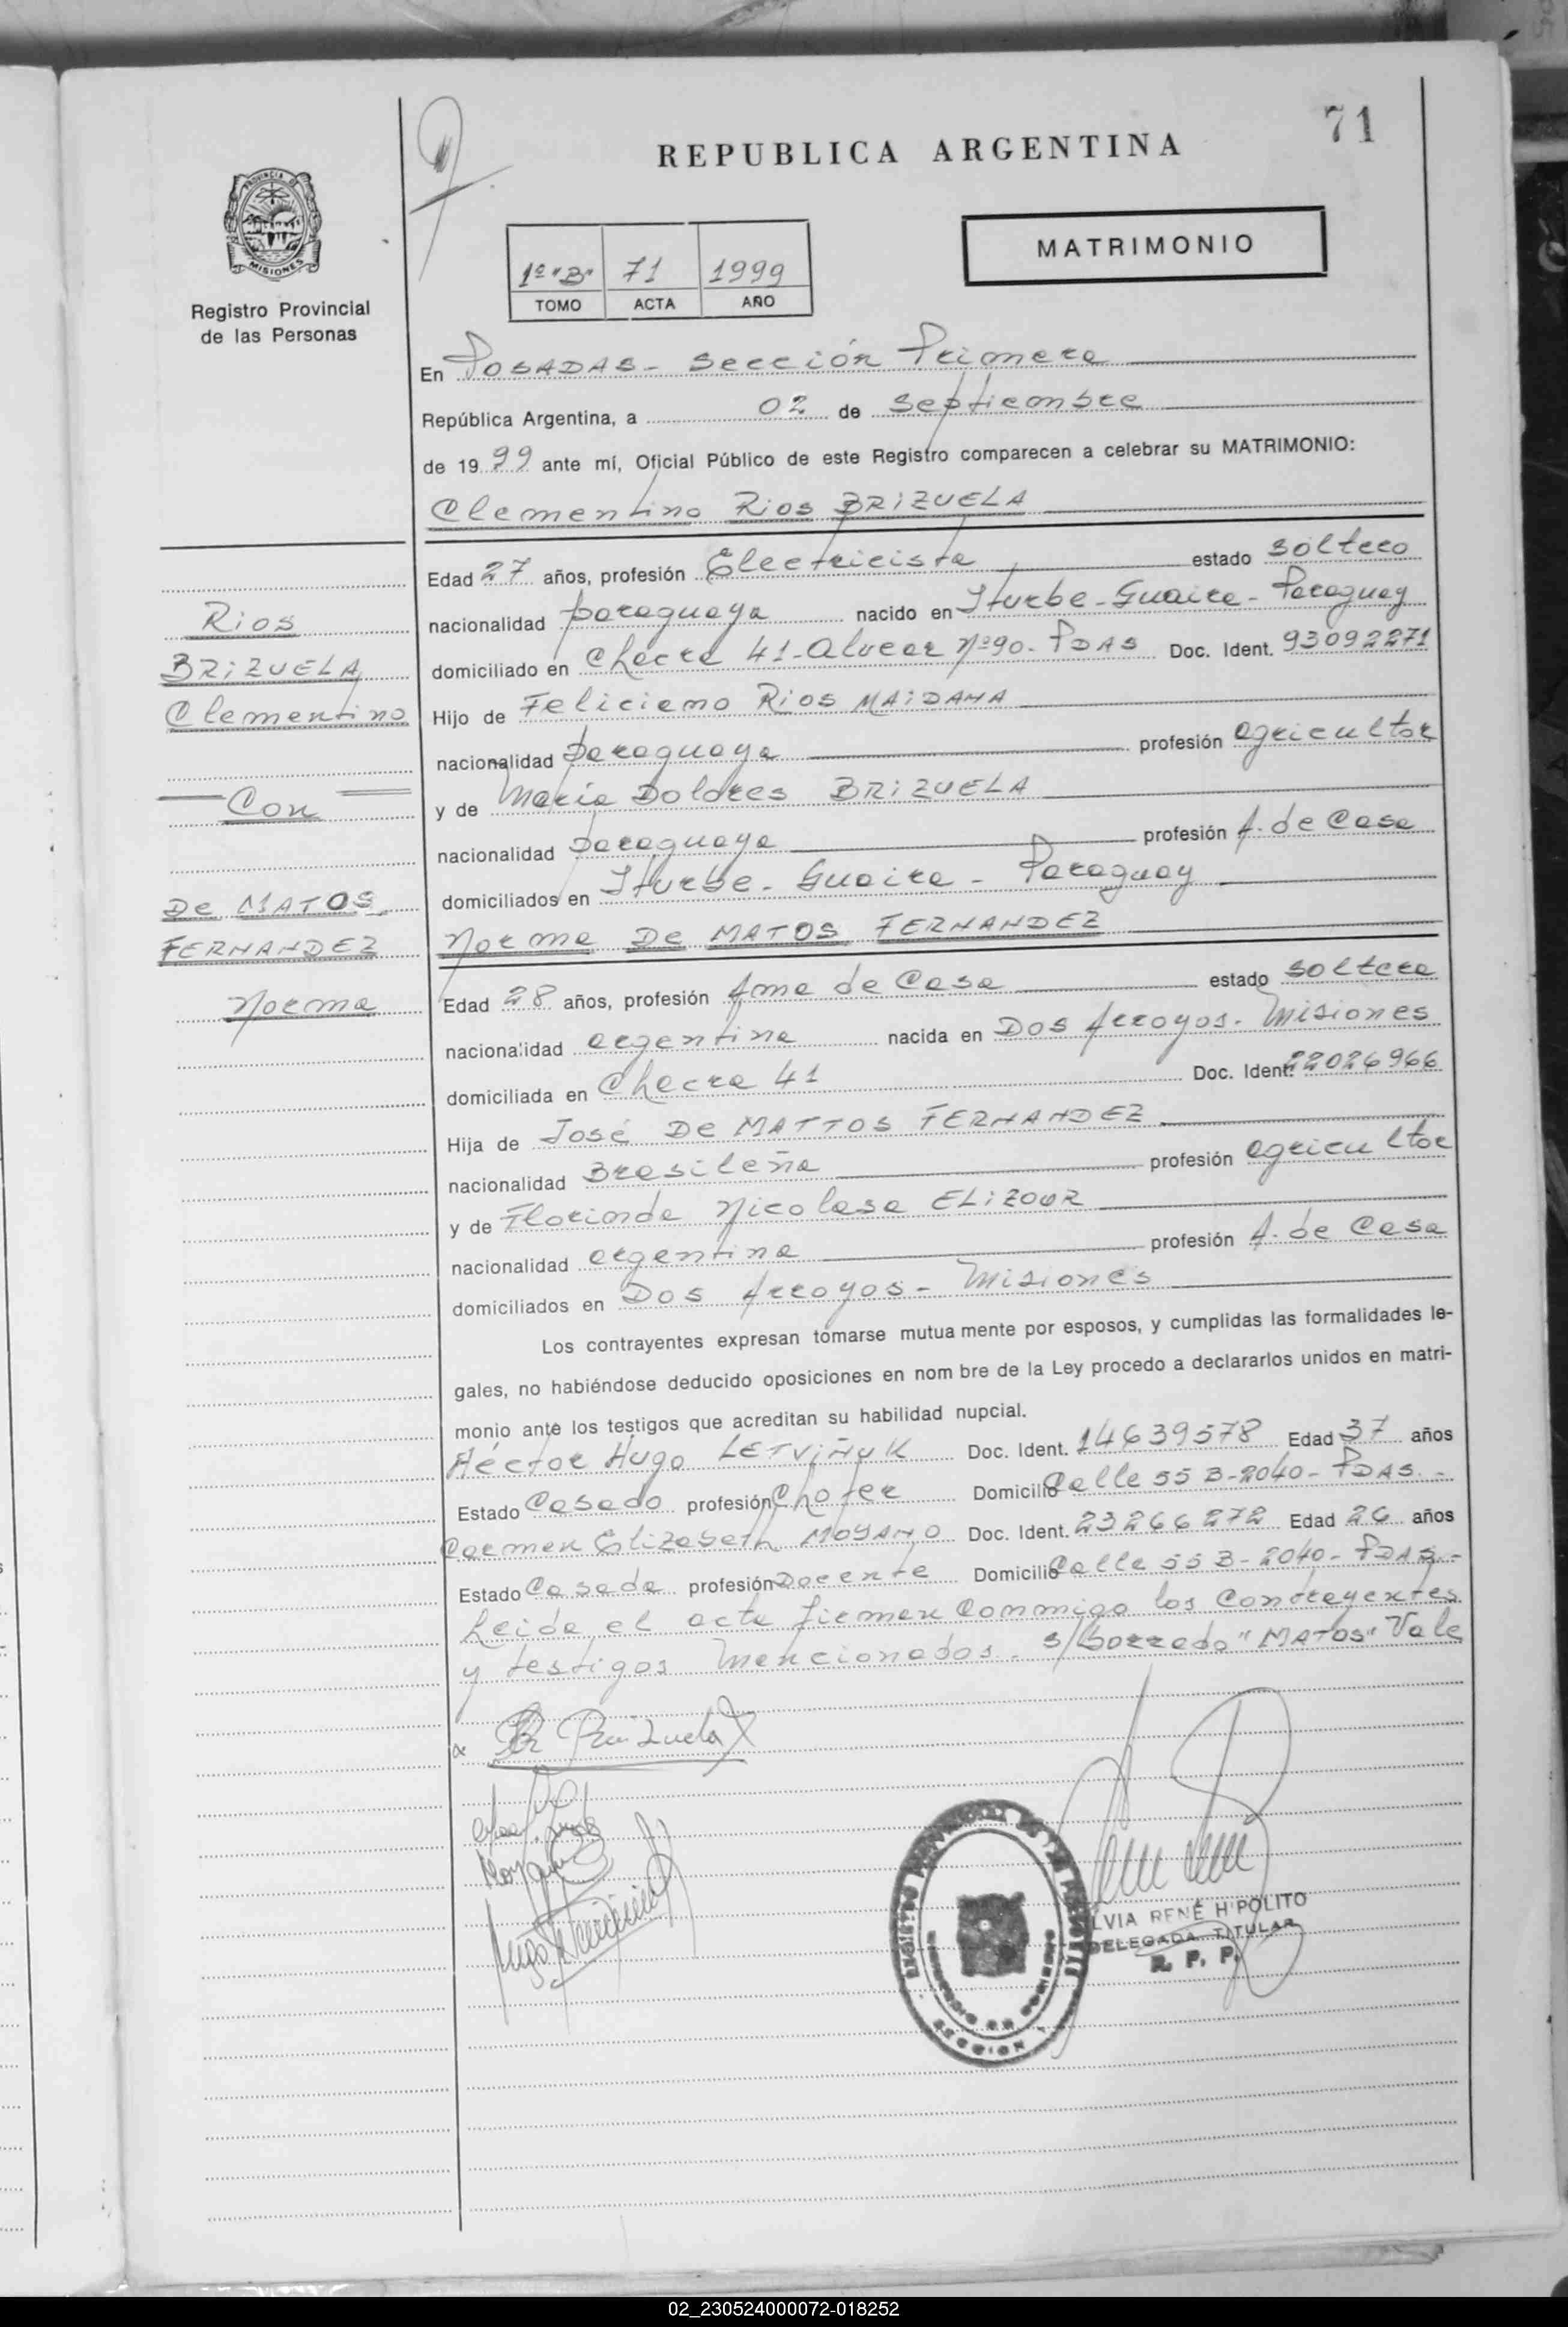 71
REPUBLICA ARGENTINA
PROVINCIA DE
MISIONES
Registro Provincial
de las Personas
MATRIMONIO
1º "B" 71 1999
TOMO ACTA AÑO
En POSADAS - Sección Primera
República Argentina, a 02 de Septiembre
de 1999 ante mí, Oficial Público de este Registro comparecen a celebrar su MATRIMONIO:
Clementino Rios BRIZUELA
Edad 27 años, profesión Electricista estado soltero
nacionalidad paraguaya nacido en Iturbe - Guaira - Paraguay
domiciliado en Chacra 41 - Alvear Nº 90 - PDAS Doc. Ident. 93092271
Hijo de Feliciano Rios MAIDANA
nacionalidad paraguaya profesión agricultor
y de María Dolores BRIZUELA
nacionalidad paraguaya profesión A. de Casa
domiciliados en Iturbe - Guaira - Paraguay
Norma De MATOS FERNANDEZ
Edad 28 años, profesión Ama de Casa estado soltera
nacionalidad argentina nacida en Dos Arroyos - Misiones
domiciliada en Chacra 41 Doc. Ident. 22026966
Hija de José De MATTOS FERNANDEZ
nacionalidad Brasileña profesión agricultor
y de Florinda Nicolasa ELIZOUR
nacionalidad argentina profesión A. de Casa
domiciliados en Dos Arroyos - Misiones
Los contrayentes expresan tomarse mutua mente por esposos, y cumplidas las formalidades le-
gales, no habiéndose deducido oposiciones en nom bre de la Ley procedo a declararlos unidos en matri-
monio ante los testigos que acreditan su habilidad nupcial.
Héctor Hugo LETVIÑUK Doc. Ident. 14639578 Edad 37 años
Estado Casado profesión Chofer Domicilio Calle 55 B - 2040 - PDAS. -
Carmen Elizabeth MOYANO Doc. Ident. 23266272 Edad 26 años
Estado Casada profesión Docente Domicilio Calle 55 B - 2040 - PDAS. -
Leida el acta firman conmigo los contrayentes
y testigos mencionados. s/borrado "MATOS" Vale
Rios
BRIZUELA
Clementino
Con
De MATOS
FERNANDEZ
Norma
Brizuela
SECCION
LVIA RENÉ HIPOLITO
DELEGADA TITULAR
R. P. P.
02_230524000072-018252